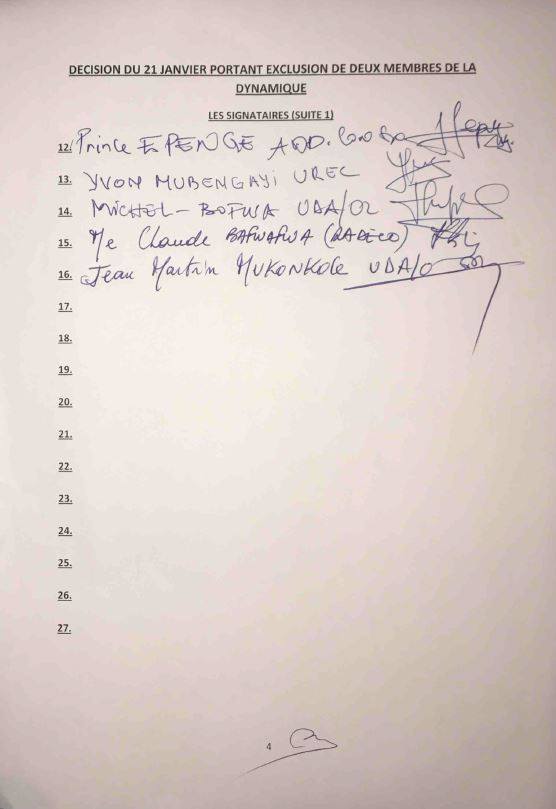 DECISION DU 21 JANVIER PORTANT EXCLUSION DE DEUX MEMBRES DE LA
DYNAMIQUE
LES SIGNATAIRES (SUITE 1)
12. Prince EPENGE
13. YVON MUBENGAYI UREC
14. MICHEL-BOFWA UDA/OR
15. Me Claude BAFWAFWA
16. Jean Martin MUKONKOLE UDA/O
17.
18.
19.
20.
21.
22.
23.
24.
25.
26.
27.
4